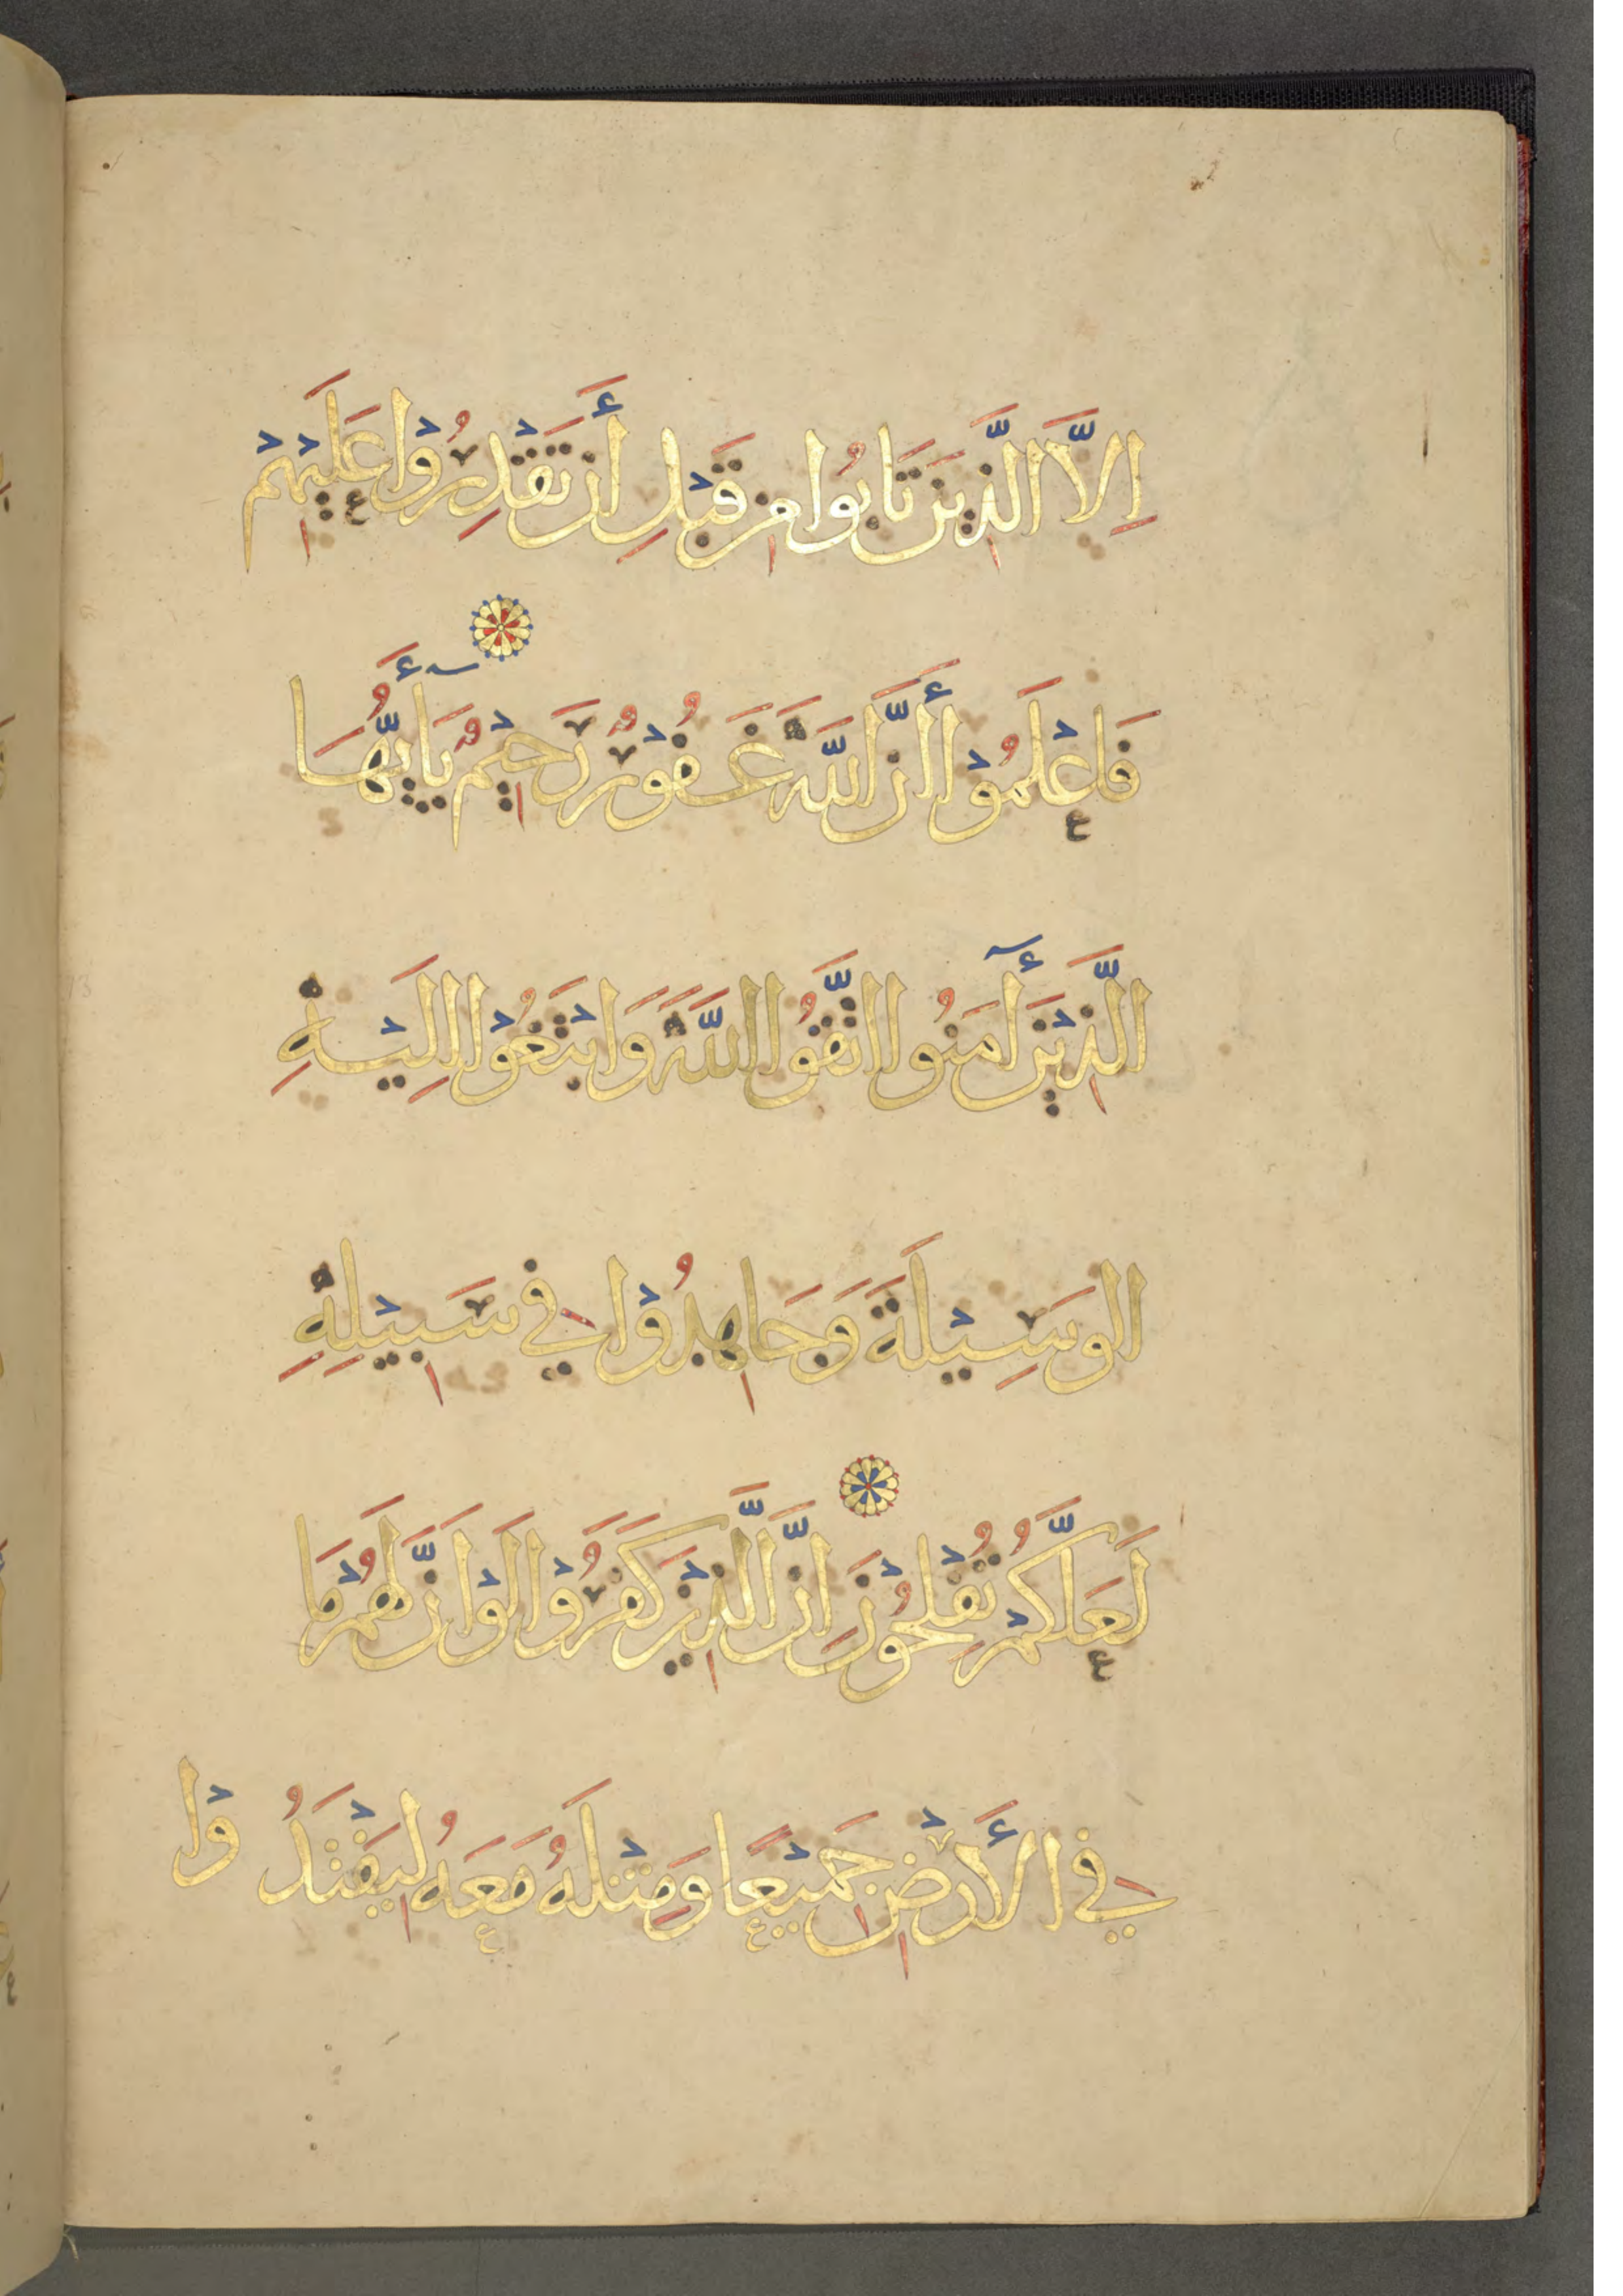 اِلَّا الَّذِينَ تَابُوا مِن قَبْلِ أَن تَقْدِرُوْا عَلَيْهِمْ
فَاعْلَمُوْا أَنَّ اللَّهَ غَفُوْرٌ رَحِيْمٌ يَا أَيُّهَا
الَّذِيْنَ آمَنُوا اتَّقُوا اللَّهَ وَابْتَغُوْا اِلَيْهِ
الوَسِيْلَةَ وَجَاهِدُوْا فِي سَبِيْلِهِ
لَعَلَّكُمْ تُفْلِحُوْنَ اِنَّ الَّذِيْنَ كَفَرُوْا لَوْ اَنَّ لَهُمْ مَا
فِي الأَرْضِ جَمِيْعًا وَمِثْلَهُ مَعَهُ لِيَفْتَدُوْا